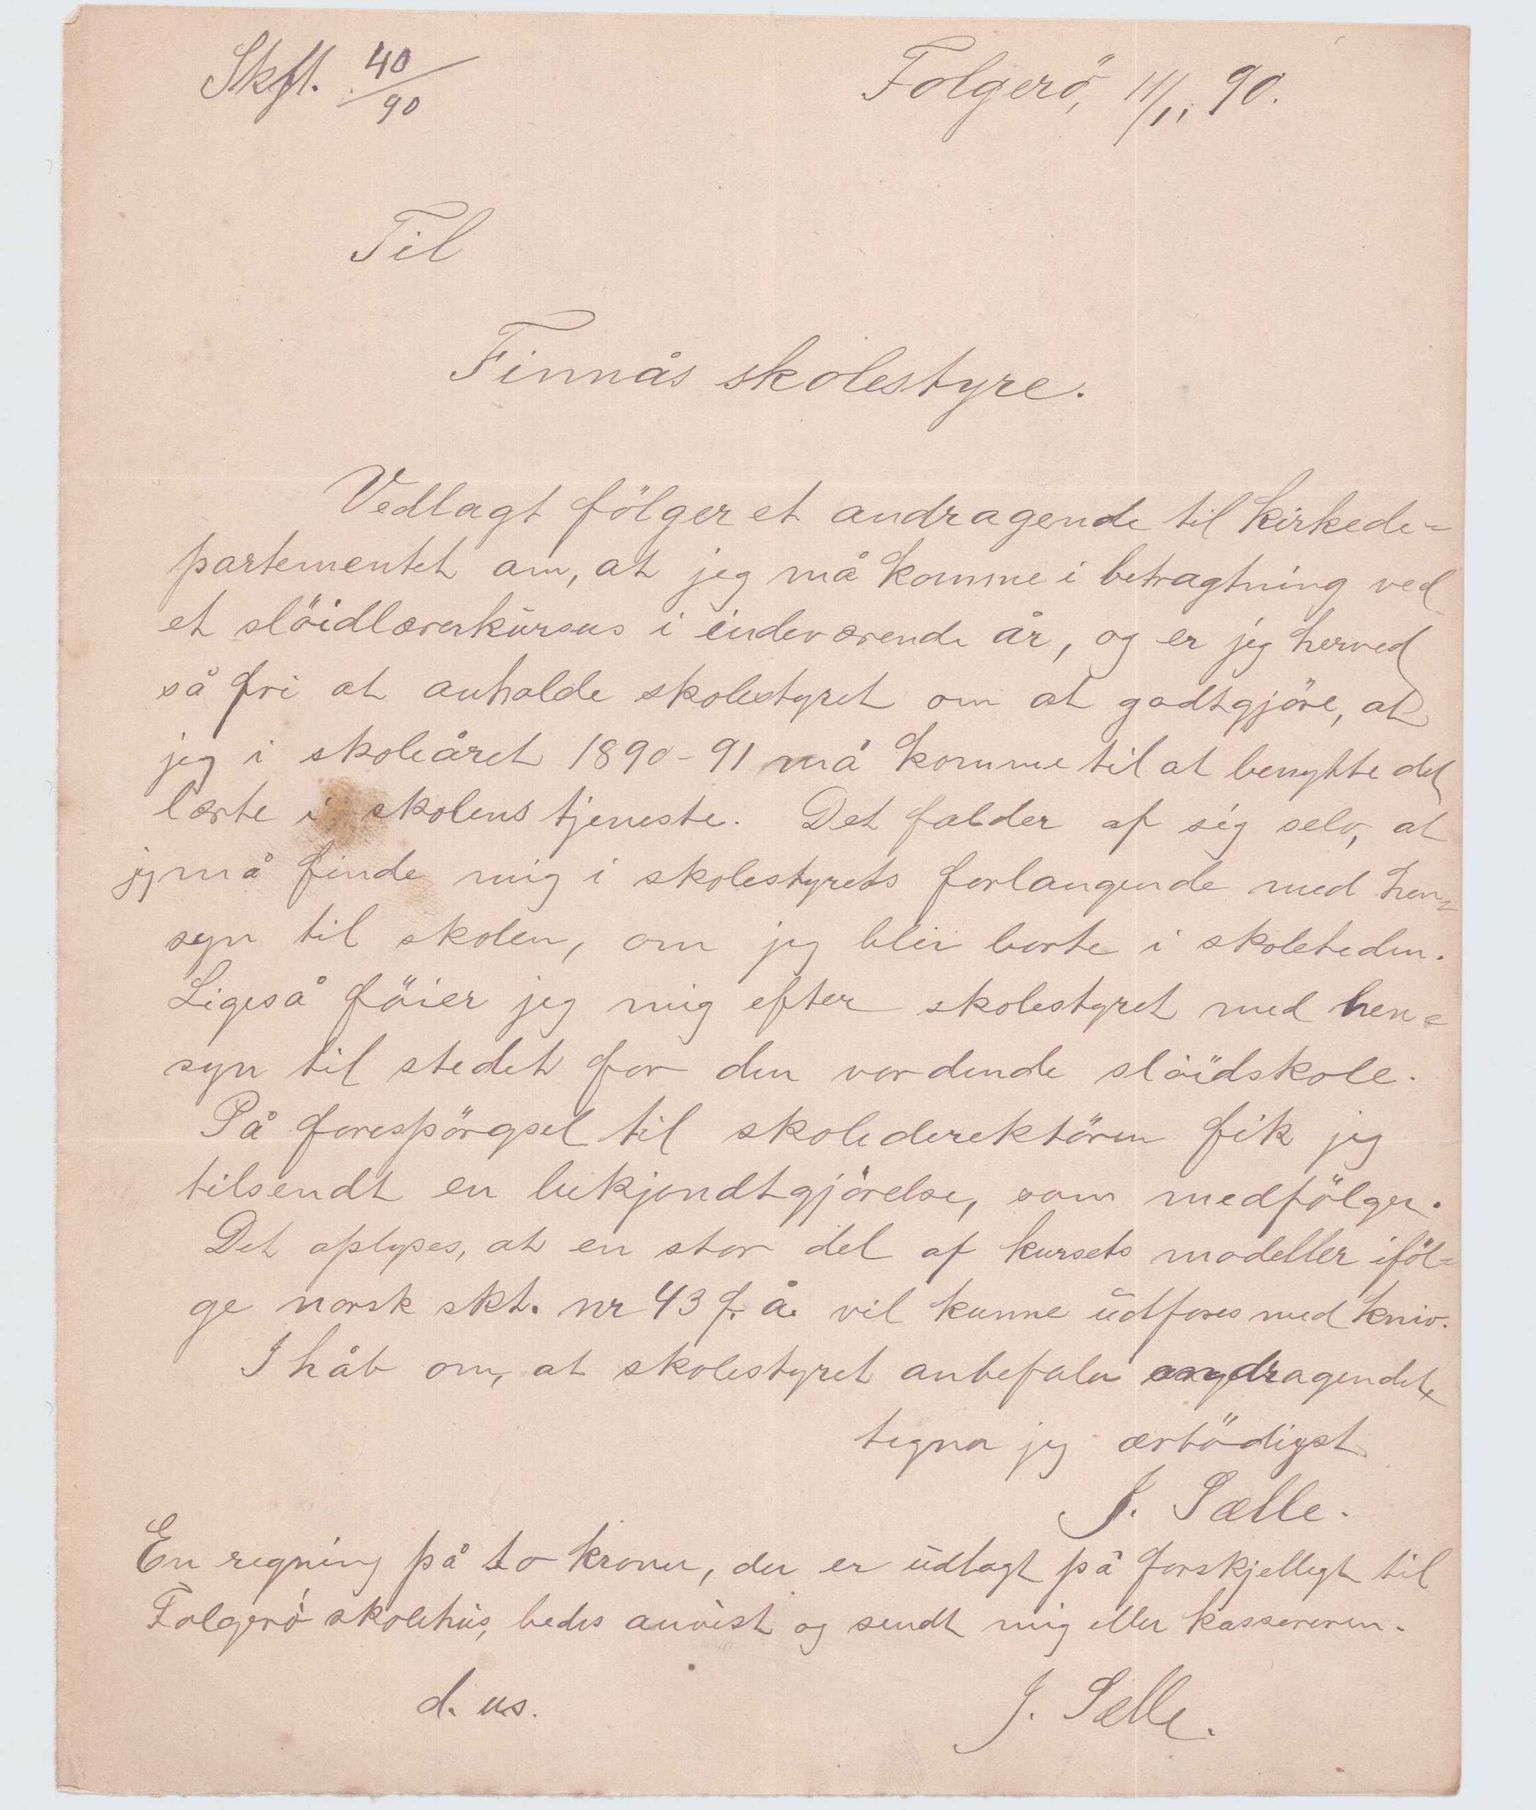 Skft. 40/90
Folgerö, 11/1. 90.
Til
Finnås skolestyre.
Vedlagt fölger et andragende til kirkede=
partementet om, at jeg må komme i betragtning ved
et slöidlærerkursus i indeværende år, og er jeg herved
så fri at anholde skolestyret om at godtgjöre, at
jeg i skoleåret 1890-91 må komme til at benytte det
lærte i skolens tjeneste. Det falder af sig selv, at
jeg må finde mig i skolestyrets forlangende med hen=
syn til skolen, om jeg blir borte i skoletiden.
Ligeså föier jeg mig efter skolestyret med hen=
syn til stedet for den vordende slöidskole.
På forespörgsel til skoledirektören fik jeg
tilsendt en bekjendtgjörelse, som medfölger.
Det oplyses, at en stor del af kursets modeller iföl=
ge norsk skt. nr 43 f. å. vil kunne udföres med kniv.
I håb om, at skolestyret anbefaler andragendet
tegner jeg ærbödigst
J. Sælle.
En regning på to kroner, der er udlagt på forskjelligt til
Folgerö skolehus, bedes anvist og sendt mig eller kassereren.
d. us.
J. Sælle.